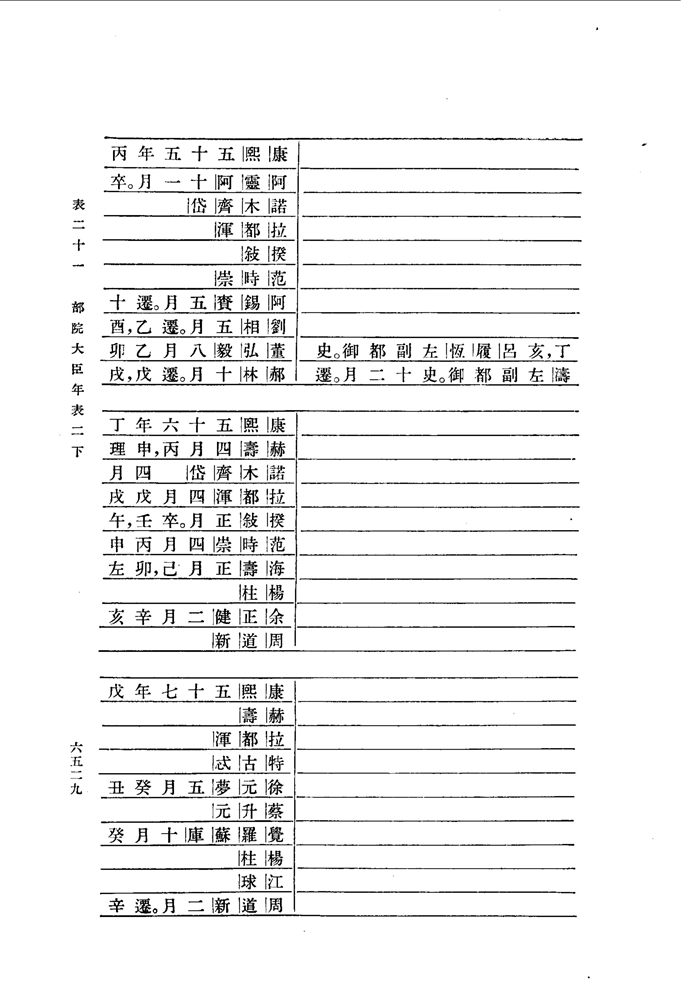 康熙五十五年丙
阿靈阿十一月卒。
諾木齊岱
拉都渾
揆敍
范時崇
阿錫賚五月遷。十
劉相五月遷。乙酉,
丁亥,呂履恆左副都御史。
董弘毅八月乙卯
濤左副都御史。十二月遷。
郝林十月遷。戊戌,
康熙五十六年丁
赫壽四月丙申,理
諾木齊岱 四月
拉都渾四月戊戌
揆敍正月卒。壬午,
范時崇四月丙申
海壽正月己卯,左
楊柱
余正健二月辛亥
周道新
康熙五十七年戊
赫壽
拉都渾
特古忒
徐元夢五月癸丑
蔡升元
覺羅蘇庫十月癸
楊柱
江球
周道新二月遷。辛
表二十一 部院大臣年表二下
六五二九